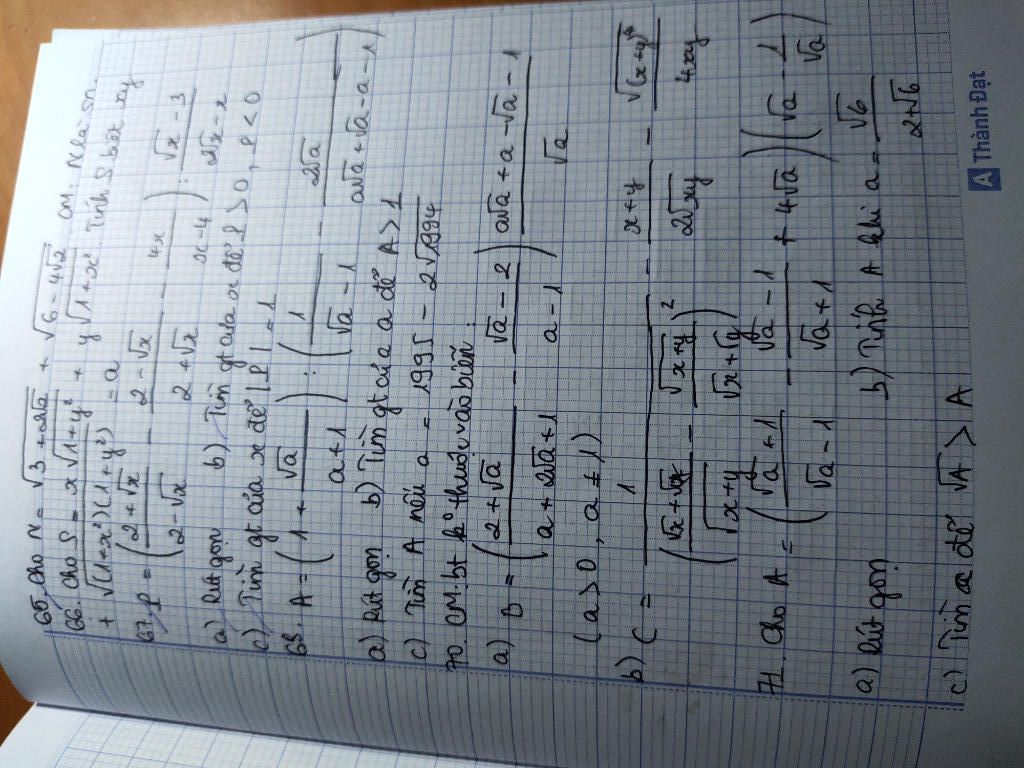 65. Cho N = √(3+2√2) + √(6-4√2) CM: N là sn.
66. Cho S = x√(1+y²) + y√(1+x²). Tính S biết xy
+ √((1+x²)(1+y²)) = a
67. P = ((2+√x)/(2-√x) - (2-√x)/(2+√x) - 4x/(x-4)) : (√x-3)/(2√x-x)
a) Rút gọn b) Tìm gt của x để P > 0, P < 0
c) Tìm gt của x để |P| = 1
68. A = (1 + √a/(a+1)) : (1/(√a-1) - 2√a/(a√a+√a-a-1))
a) Rút gọn b) Tìm gt của a để A > 1
c) Tìm A nếu a = 1995 - 2√1994
70. CM: bt k° thuộc vào biến:
a) B = ((2+√a)/(a+2√a+1) - (√a-2)/(a-1)) (a√a+a-√a-1)/√a
(a > 0, a ≠ 1)
b) C = 1/((√x+√y)/√(x+y) - √(x+y)/(√x+√y))² - (x+y)/(2√xy) - √(x+y)⁴/(4xy)
71. Cho A = ((√a+1)/(√a-1) - (√a-1)/(√a+1) + 4√a)(√a - 1/√a)
a) Rút gọn b) Tính A khi a = √6/(2+√6)
c) Tìm a để √A > A
A Thành Đạt